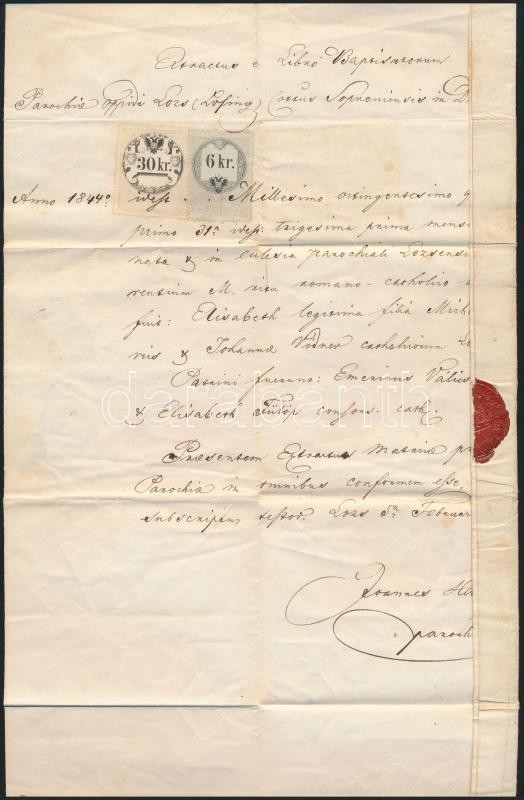 Extractus e Libro Baptisatorum
Parochiæ Oppidi Lozs Cottus Soproniensis in D
30 kr. 6 kr.
Anno 1844º idest Millesimo octingentesimo q
primo 31ª idest trigesima prima mens
nata & in eclesia parochiali Lozsensi
rentium M. ritu romano-catholico
fuit: Elisabeth legitima filia Mich
& Johannæ Vidner catholicorum
Patrini fuerunt: Emericus
& Elisabeth Fülöp consors. cath.
darabanth
Præsentem Extractus matricæ pr
Parochiæ in omnibus conformem esse
subscriptus testor. Lozs 5ª Februar
Joannes
paroch